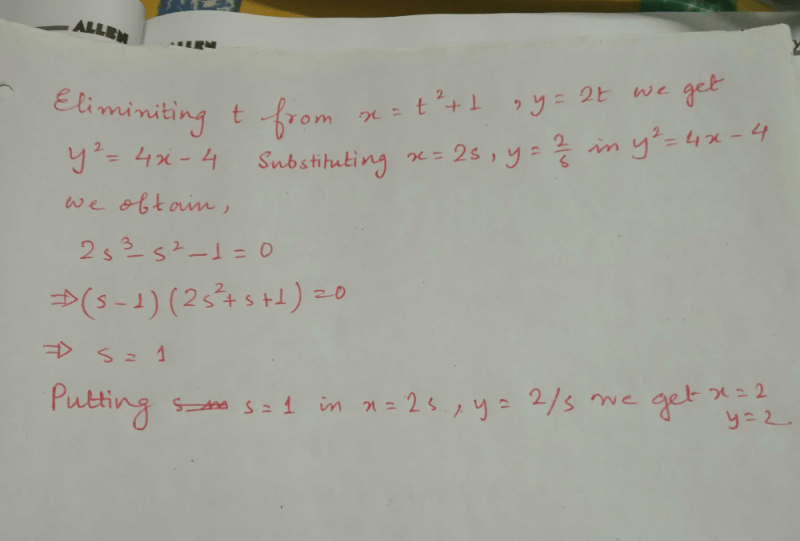 ALLEN
ALLEN
Eliminiting t from x = t²+1 , y = 2t we get
y² = 4x - 4 Substituting x = 2s , y = 2/s in y² = 4x - 4
we obtain,
2s³ - s² - 1 = 0
⇒ (s-1) (2s²+s+1) = 0
⇒ s = 1
Putting s = 1 in x = 2s , y = 2/s we get x = 2
y = 2